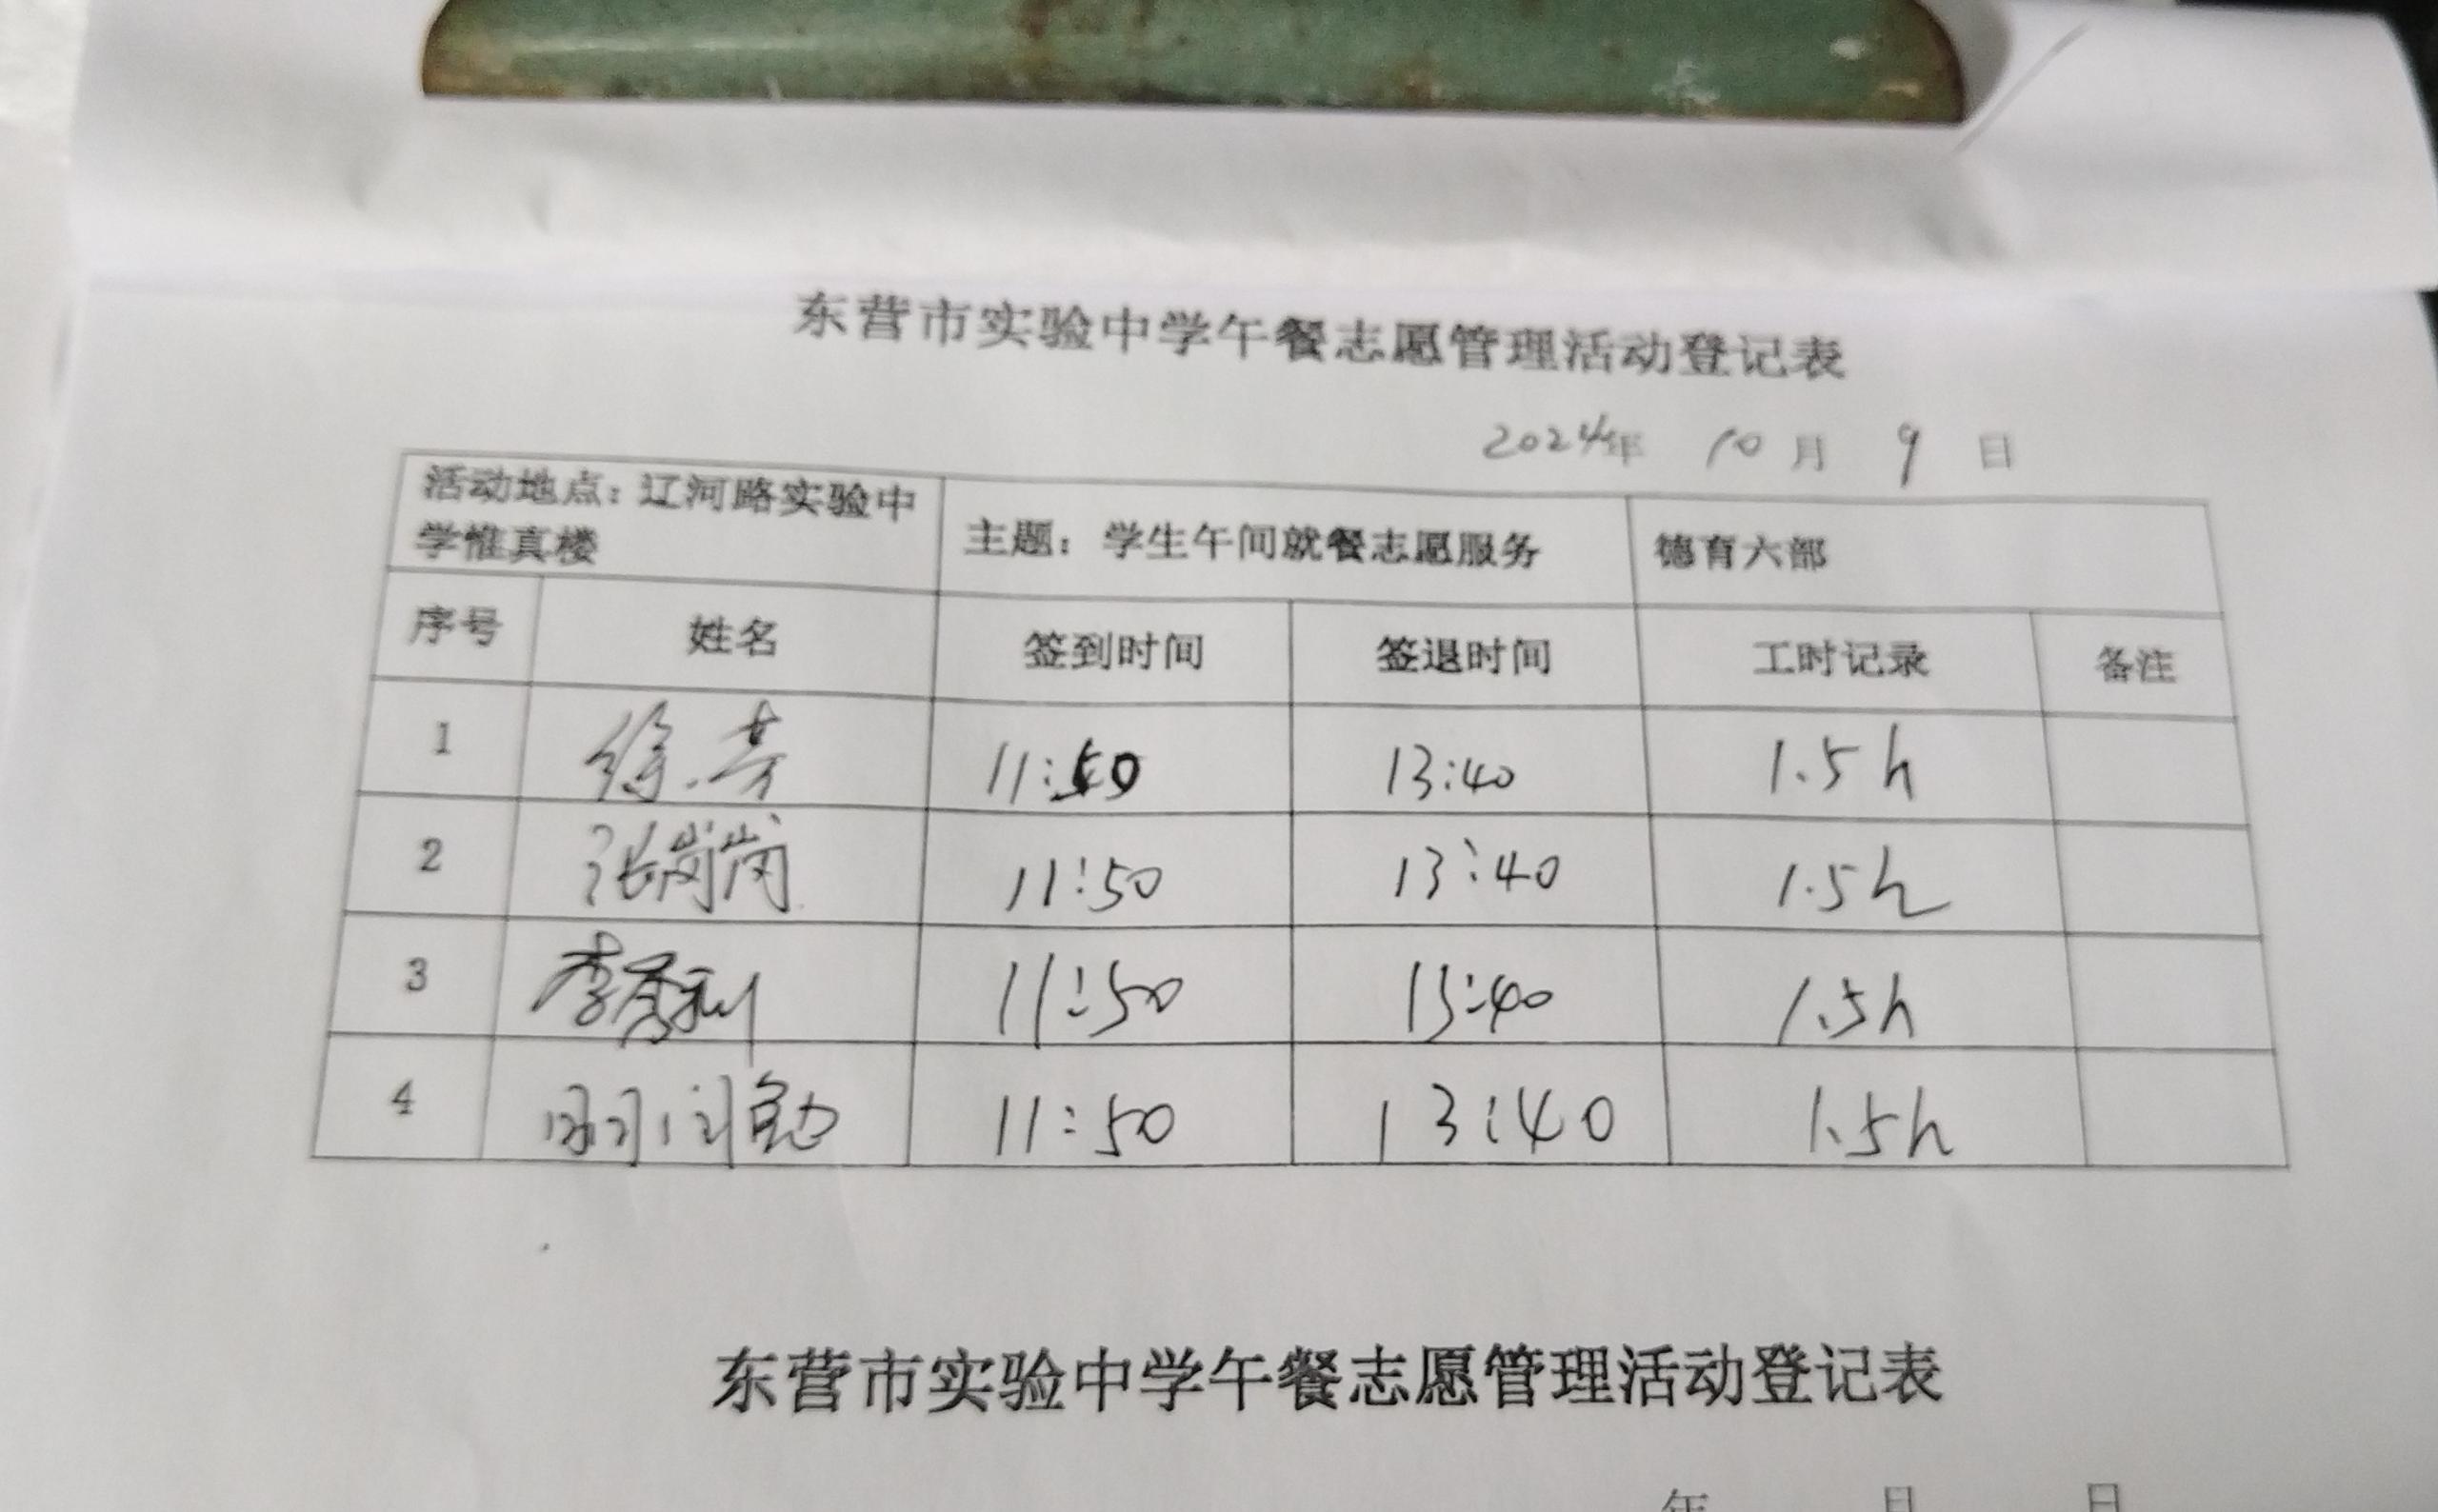 东营市实验中学午餐志愿管理活动登记表
2024年 10 月 9 日
活动地点：辽河路实验中
学惟真楼
主题：学生午间就餐志愿服务
德育六部
序号 姓名 签到时间 签退时间 工时记录 备注
1 徐芳 11:50 13:40 1.5h
2 张岗岗 11:50 13:40 1.5h
3 李秀利 11:50 13:40 1.5h
4 11:50 13:40 1.5h
东营市实验中学午餐志愿管理活动登记表
年 月 日